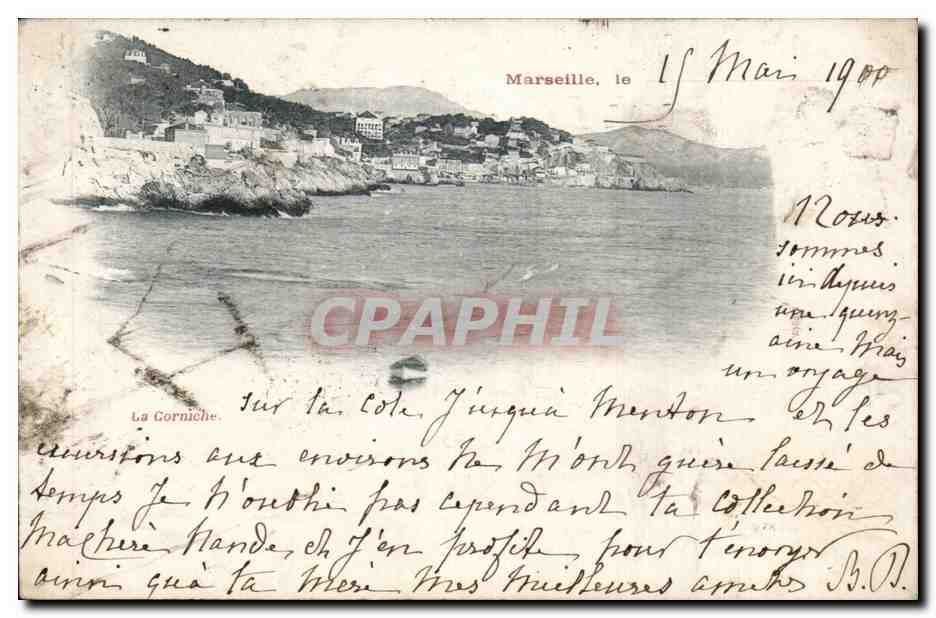 Marseille, le 15 Mai 1900
Nous
sommes
ici depuis
une quinz-
aine Mais
un voyage
CPAPHIL
La Corniche.
sur la Cote Jusqu'à Menton et les
excursions aux environs Ne M'ont guère laissé de
temps Je N'oublie pas cependant ta Collection
Ma chère Nande, et J'en profite pour t'envoyer
ainsi qu'à ta Mère Mes Meilleures amitiés B. B.